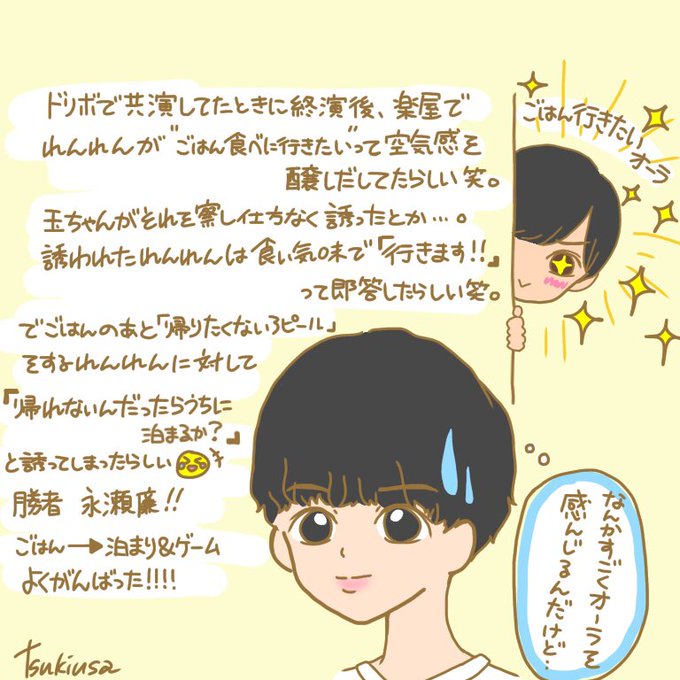 ドリボで共演してたときに終演後、楽屋で
れんれんが"ごはん食べに行きたい"って空気感を
醸しだしてたらしい笑。
玉ちゃんがそれを察し仕方なく誘ったとか…。
誘われたれんれんは食い気味で「行きます!!」
って即答したらしい笑。
でごはんのあと「帰りたくないアピール」
をするれんれんに対して
『帰れないんだったらうちに
泊まるか?』
と誘ってしまったらしい
勝者 永瀬廉!!
ごはん→泊まり&ゲーム
よくがんばった!!!!
ごはん行きたい
オーラ
なんかすごくオーラを
感んじるんだけど…
tsukiusa